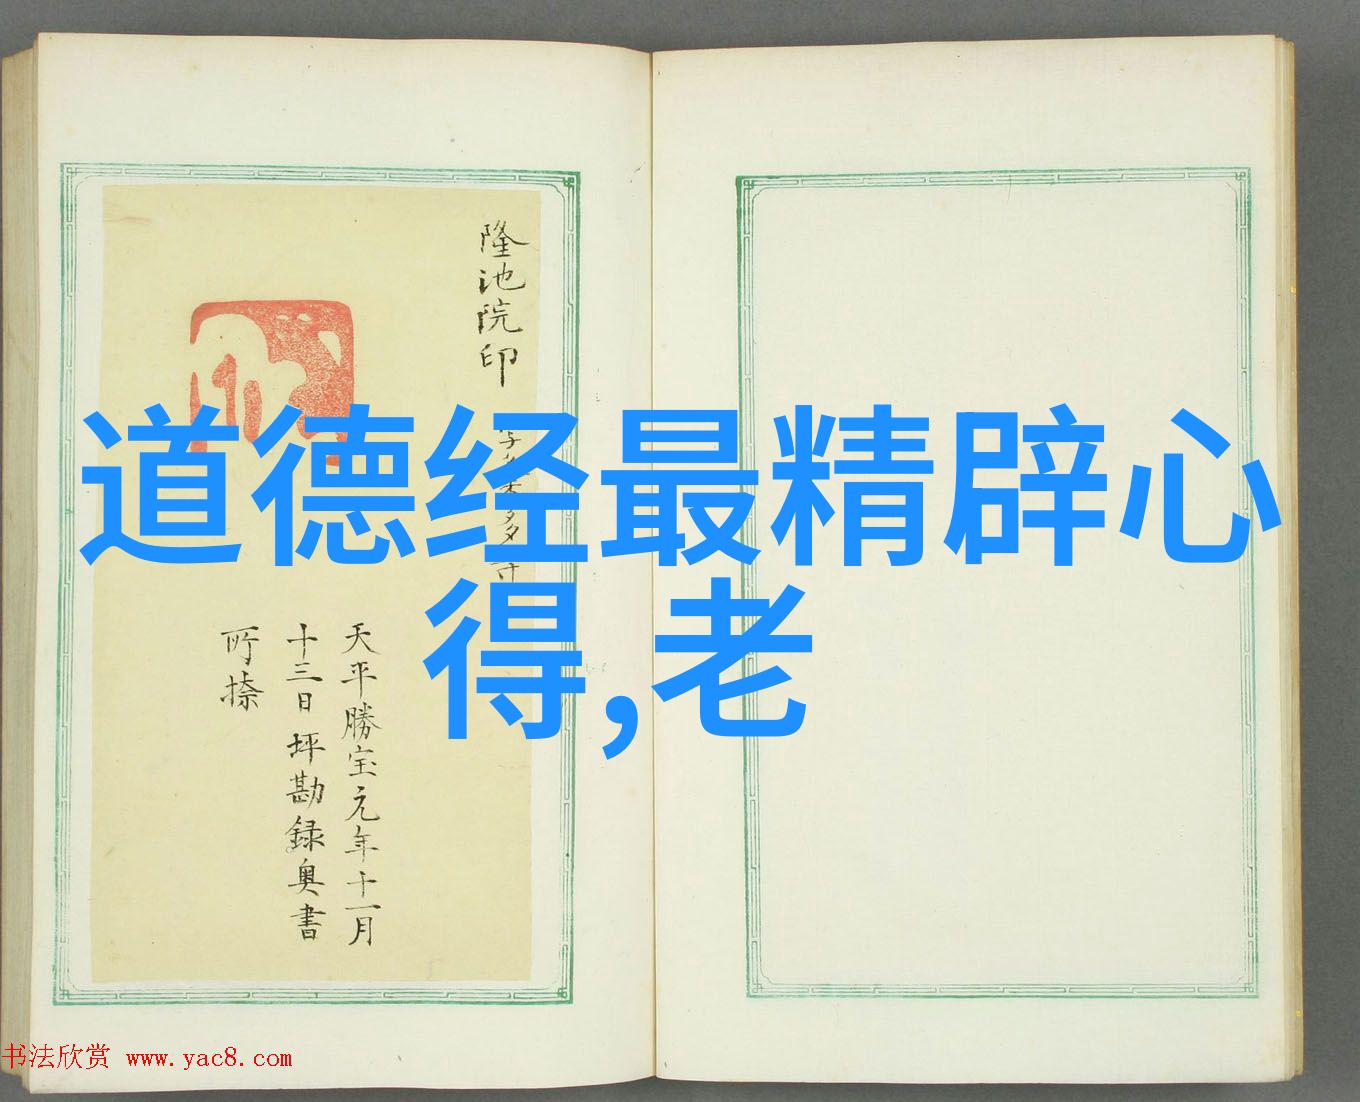 道德经最精辟心
得,老
隆池院印
天平勝宝元年十一月
十三日坪勘録奥書
所捺
书法欣赏 www.yac8.com